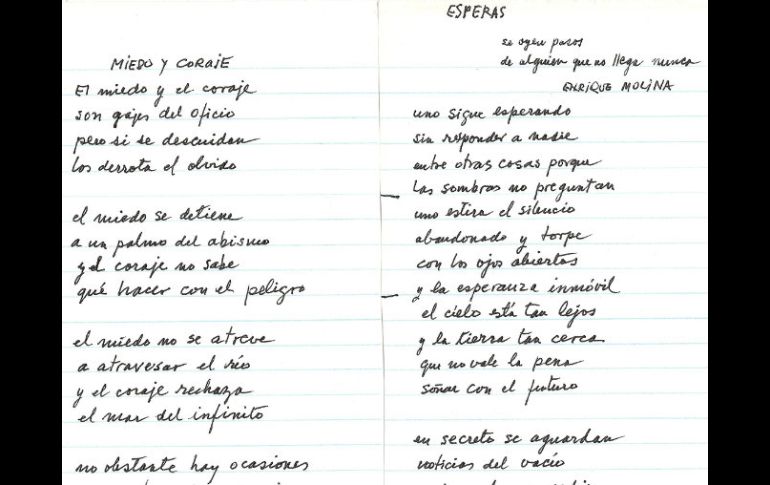 MIEDO Y CORAJE
El miedo y el coraje
son gajes del oficio
pero si se descuidan
los derrota el olvido
el miedo se detiene
a un palmo del abismo
y el coraje no sabe
qué hacer con el peligro
el miedo no se atreve
a atravesar el río
y el coraje rechaza
el mar del infinito
no obstante hay ocasiones
ESPERAS
se oyen pasos
de alguien que no llega nunca
ENRIQUE MOLINA
uno sigue esperando
sin responder a nadie
entre otras cosas porque
las sombras no preguntan
uno estira el silencio
abandonado y torpe
con los ojos abiertos
y la esperanza inmóvil
el cielo está tan lejos
y la tierra tan cerca
que no vale la pena
soñar con el futuro
en secreto se aguardan
noticias del vacío